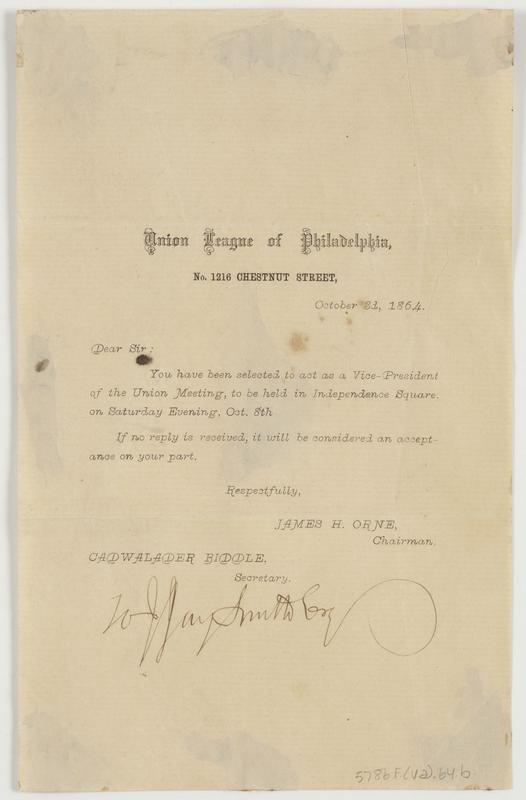 Union League of Philadelphia,
No. 1216 CHESTNUT STREET,
October 3d, 1864.
Dear Sir:
You have been selected to act as a Vice-President
of the Union Meeting, to be held in Independence Square,
on Saturday Evening, Oct. 8th
If no reply is received, it will be considered an accept-
ance on your part.
Respectfully,
JAMES H. ORNE,
Chairman.
CADWALADER BIDDLE,
Secretary.
To J Jay Smith Esq
5786.F.(v2).64.b